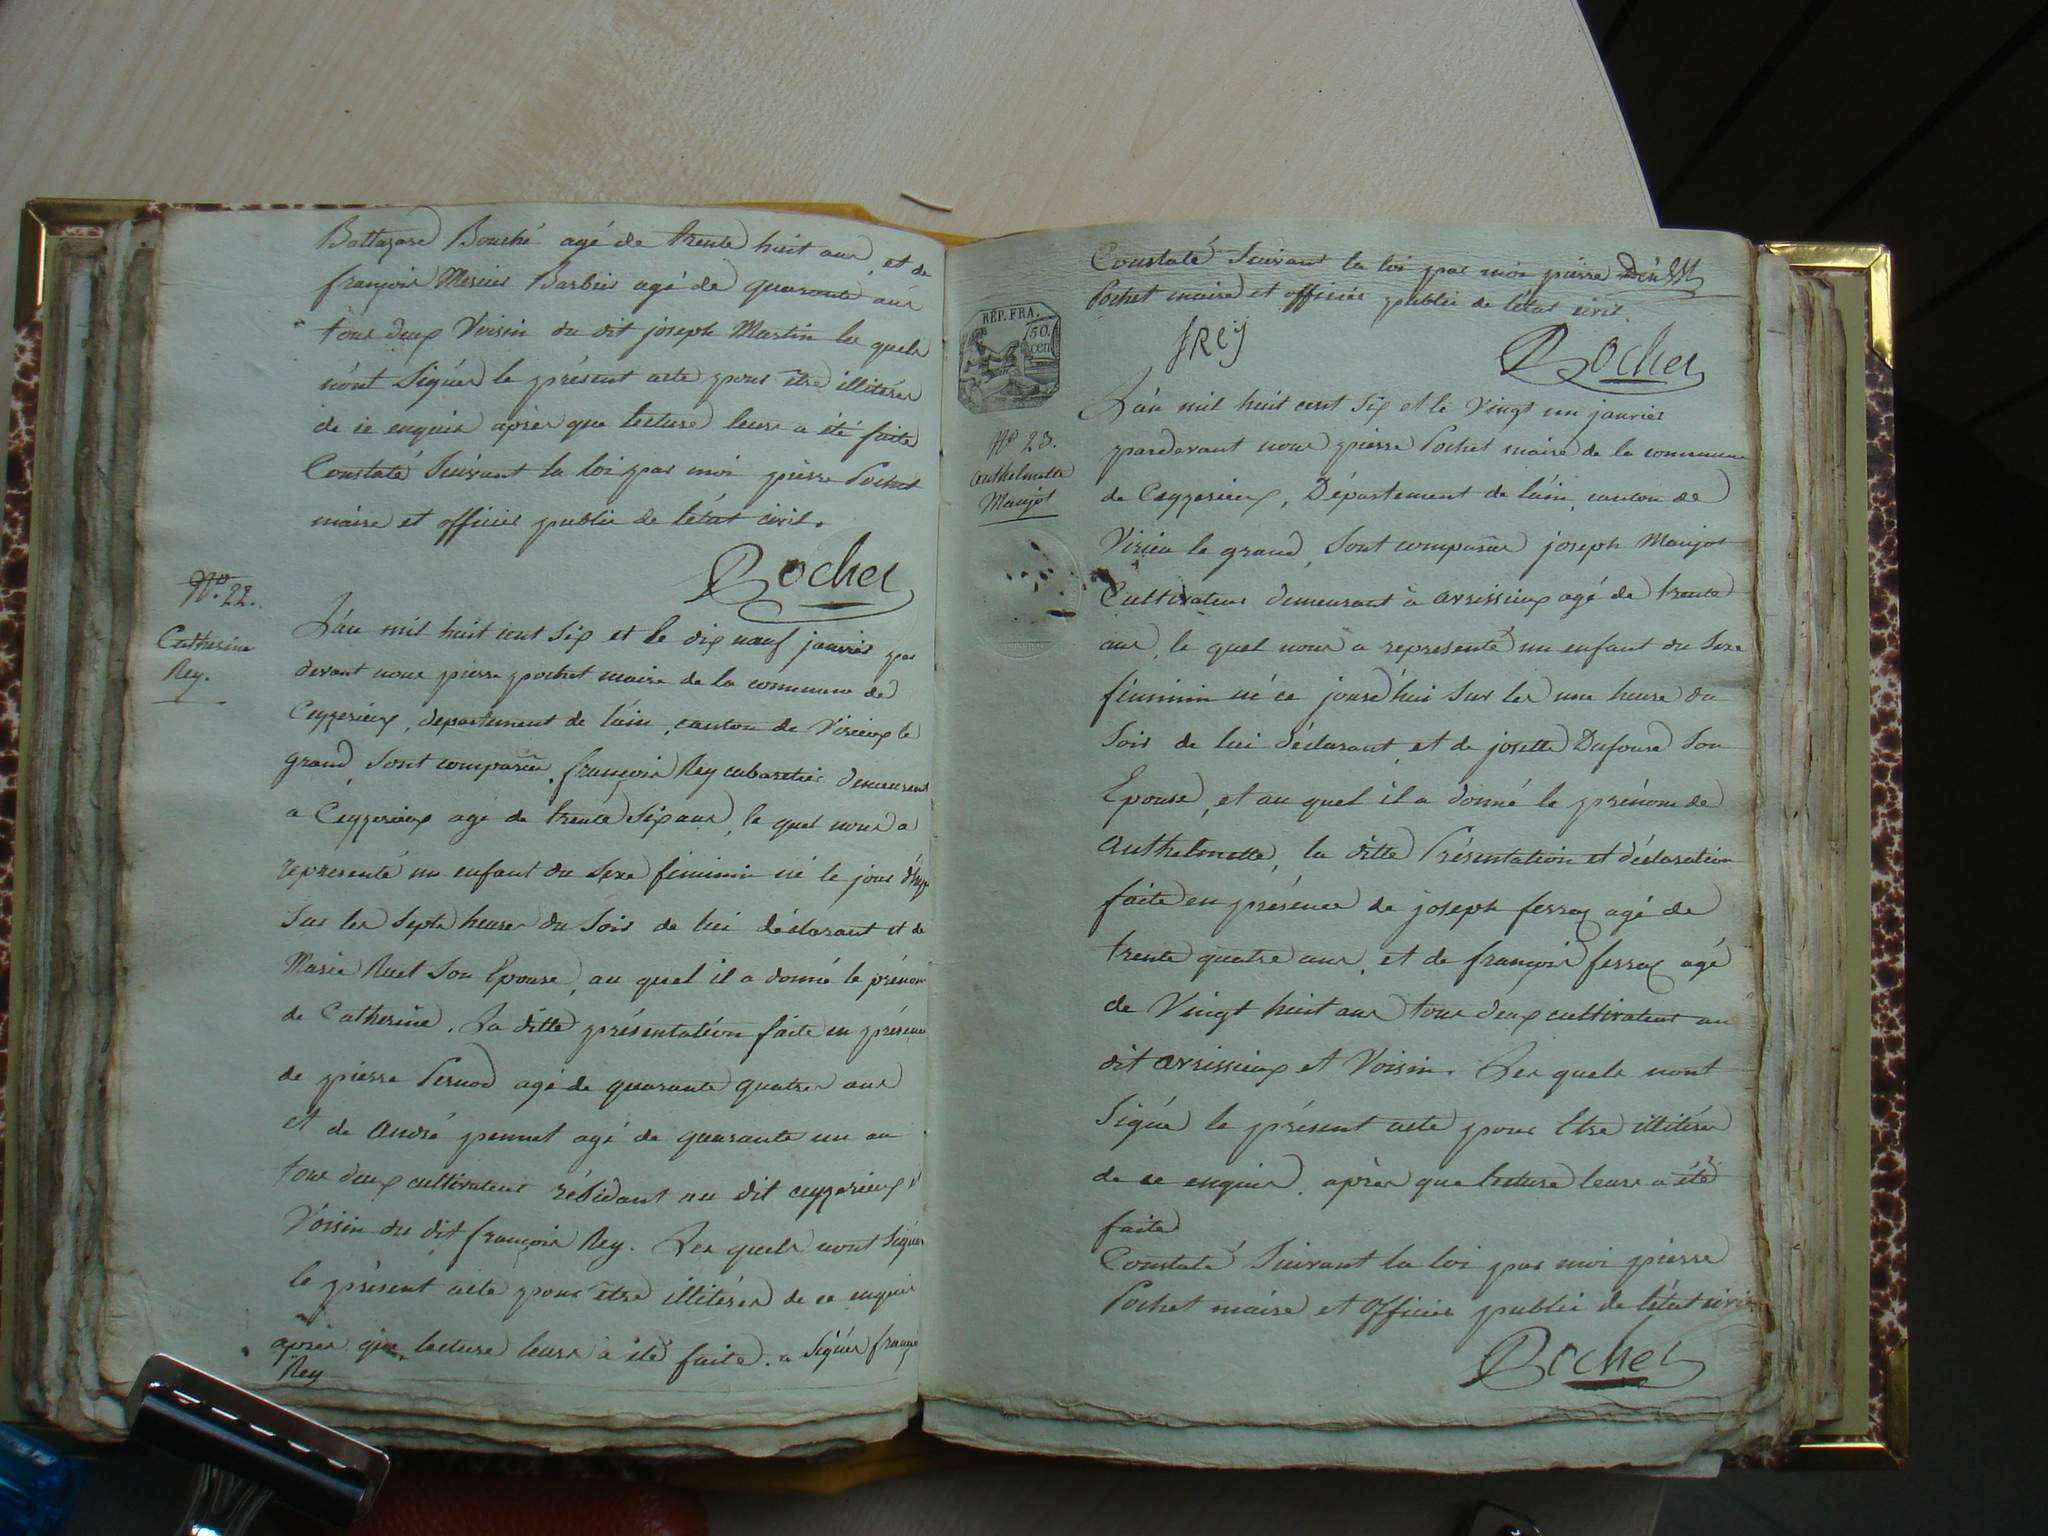 Baltazard Bouché agé de trente huit ans, et de
françois Mercier Barbier agé de quarante ans
tous deux Voisin du dit joseph Martin les quels
n'ont Signés le présent acte pour être illitérés
de ce enquis après que lecture leurs a été faite
Constaté Suivant la loi par moi pierre Pochet
maire et officier public de l'état civil.
Pochet
N.º 22.
Catherine
Rey.
L'an mil huit cent Six et le dix neuf janvier par
devant nous pierre pochet maire de la commune de
Ceyzerieux, departement de l'ain, canton de Virieux le
grand, Sont comparus, françois Rey cabaretier demeurant
a Ceyzerieux age de trente Six ans, le quel nous a
representé un enfant du Sexe féminin né le jour d'huy
Sur les Septe heures du Soir de lui déclarant et de
Marie Ruet Son Epouse, au quel il a donné le prénom
de Catherine. La ditte présentation faite en présence
de pierre Pernod agé de quarante quatres ans
et de André pennet agé de quarante un an
tous deux cultivateurs résidant au dit ceyzerieux et
Voisin du dit françois Rey. Les quels n'ont Signés
le présent acte pour etre illitérés de ce enquis
après que lecture leurs a été faite. a Signés françois
Rey
Constaté Suivant la loi par moi pierre
Pochet maire et officier public de l'état civil.
fRey
Pochet
RÉP. FRA.
50.
cen
Nº 23.
Anthelmette
Maujot
L'an mil huit cent Six et le Vingt un janvier
pardevant nous pierre Pochet maire de la commune
de Ceyzerieux, Département de l'ain, canton de
Virieu le grand, Sont comparus joseph Maujot
Cultivateur demeurant à avrissieux agé de trente
ans, le quel nous a representé un enfant du Sexe
féminin né ce jourd'hui Sur les une heure du
Soir de lui déclarant, et de josette Dufour Son
Epouse, et au quel il a donné le prénom de
Anthelmette, la ditte Présentation et déclaration
faite en présence de joseph ferraz agé de
trente quatre ans, et de françois ferraz agé
de Vingt huit ans tous deux cultivateurs au
dit avrissieux et Voisin. Les quels n'ont
Signé le présent acte pour Etre illitérés
de ce enquis, après que lecture leurs a été
faite
Constaté Suivant la loi par moi pierre
Pochet maire et officier public de l'état civil
Pochet